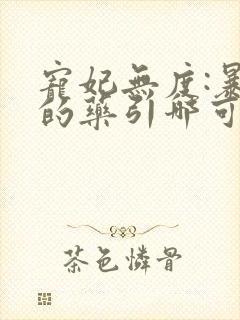 寵妃無度:暴
的藥引哪可
茶色憐骨